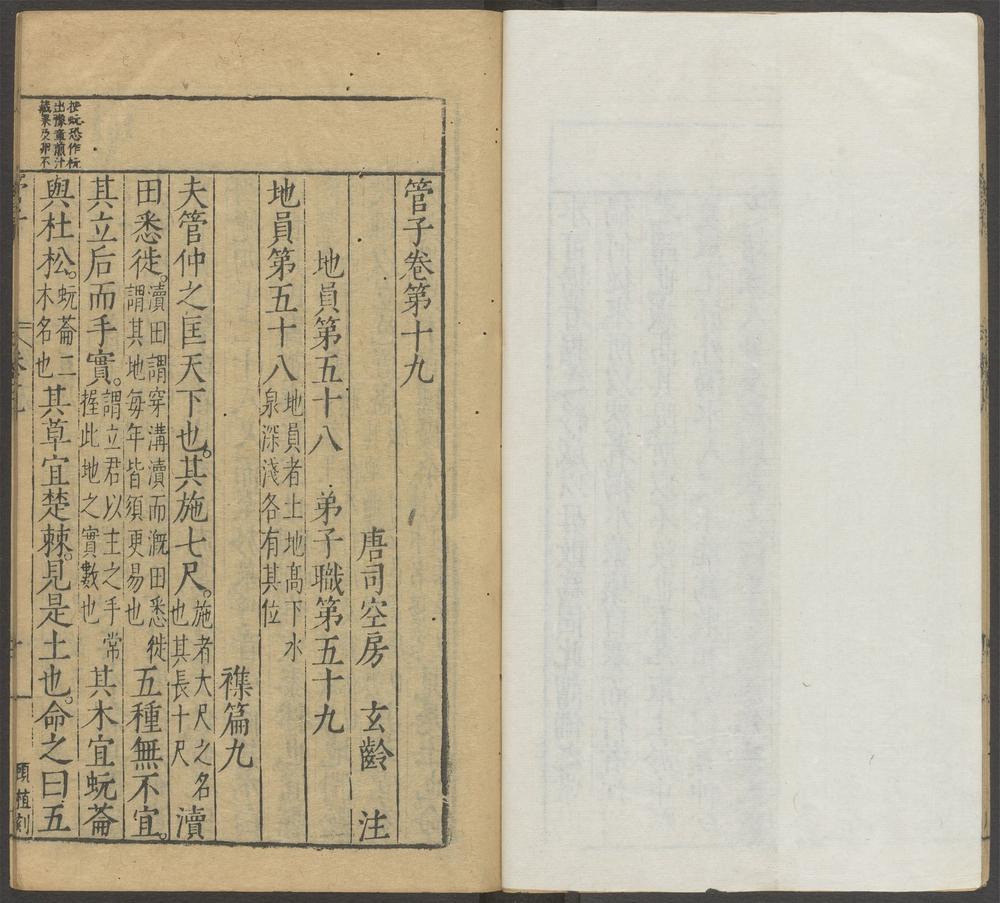 管子卷第十九
唐司空房 玄齡 注
地員第五十八 弟子職第五十九
地員第五十八 地員者土地髙下水泉深淺各有其位
襍篇九
夫管仲之匡天下也。其施七尺。施者大尺之名也其長十尺 瀆
田悉徙。瀆田謂穿溝瀆而溉田悉徙謂其地每年皆須更易也 五種無不宜。
其立后而手實。謂立君以主之手常握此地之實數也 其木宜蚖菕
與杜松。蚖菕二木名也 其草宜楚棘。見是土也。命之曰五
按蚖恐作杬
出豫章煎汁
藏果及卵不
顧植刻